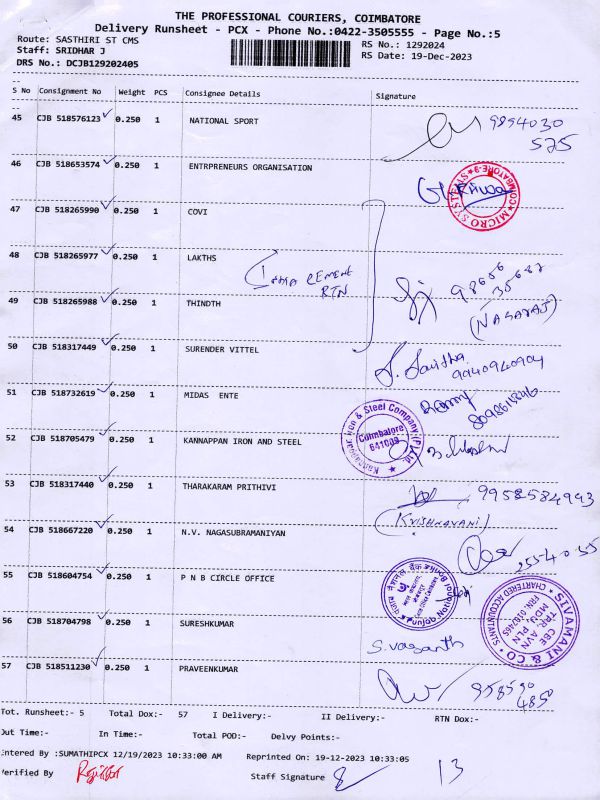 THE PROFESSIONAL COURIERS, COIMBATORE
Delivery Runsheet - PCX - Phone No.:0422-3505555 - Page No.:5
Route: SASTHIRI ST CMS
RS No.: 1292024
Staff: SRIDHAR J
RS Date: 19-Dec-2023
DRS No.: DCJB129202405
S No Consignment No Weight PCS Consignee Details Signature
45 CJB 518576123 0.250 1 NATIONAL SPORT
9894030
525
46 CJB 518653574 0.250 1 ENTRPRENEURS ORGANISATION
MICRO SYSTEMS
COIMBATORE-9
47 CJB 518265990 0.250 1 COVI
48 CJB 518265977 0.250 1 LAKTHS
CEMENT
RTN
98656
35687
(NAGARAJ)
49 CJB 518265988 0.250 1 THINDTH
50 CJB 518317449 0.250 1 SURENDER VITTEL
J. Savitha
9940940904
51 CJB 518732619 0.250 1 MIDAS ENTE
52 CJB 518705479 0.250 1 KANNAPPAN IRON AND STEEL
Kannappan Iron & Steel Company (P) Ltd.
Coimbatore
641009
53 CJB 518317440 0.250 1 THARAKARAM PRITHIVI
9958584993
(KRISHNAVANI)
54 CJB 518667220 0.250 1 N.V. NAGASUBRAMANIYAN
55 CJB 518604754 0.250 1 P N B CIRCLE OFFICE
punjab national bank
SIVAMANI & CO
CHARTERED ACCOUNTANTS
CBE AVN
TRP PLN
MDU
56 CJB 518704798 0.250 1 SURESHKUMAR
S. vasanth
57 CJB 518511230 0.250 1 PRAVEENKUMAR
958590
4850
Tot. Runsheet:- 5 Total Dox:- 57 I Delivery:- II Delivery:- RTN Dox:-
Out Time:- In Time:- Total POD:- Delvy Points:-
Entered By :SUMATHIPCX 12/19/2023 10:33:00 AM Reprinted On: 19-12-2023 10:33:05
Verified By
Staff Signature
13